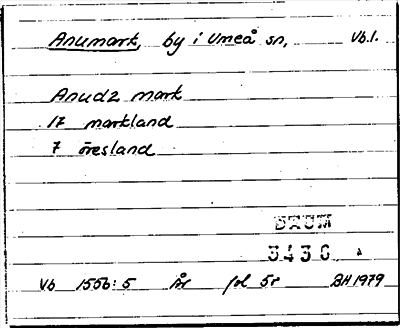 Anumark, by i Umeå sn, Vb.l.
Anudz mark
17 markland
7 öresland
DAUM
3430
Vb 1556:5 år fol 5r BH 1979